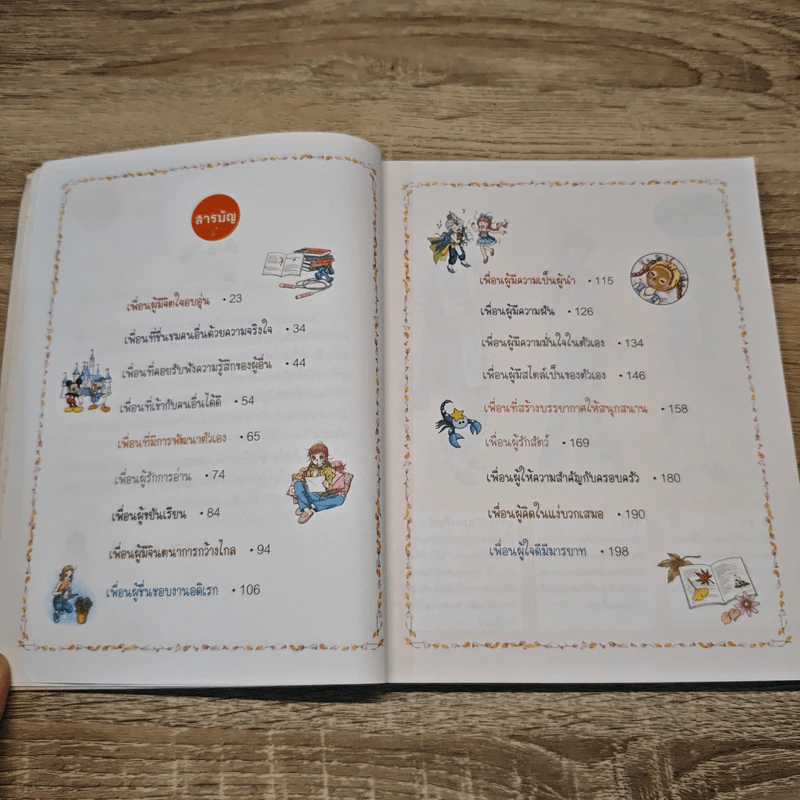 สารบัญ
เพื่อนผู้มีจิตใจอบอุ่น • 23
เพื่อนที่ชื่นชมคนอื่นด้วยความจริงใจ • 34
เพื่อนที่คอยรับฟังความรู้สึกของผู้อื่น • 44
เพื่อนที่เข้ากับคนอื่นได้ดี • 54
เพื่อนที่มีการพัฒนาตัวเอง • 65
เพื่อนผู้รักการอ่าน • 74
เพื่อนผู้ขยันเรียน • 84
เพื่อนผู้มีจินตนาการกว้างไกล • 94
เพื่อนผู้ชื่นชอบงานอดิเรก • 106
เพื่อนผู้มีความเป็นผู้นำ • 115
เพื่อนผู้มีความฝัน • 126
เพื่อนผู้มีความมั่นใจในตัวเอง • 134
เพื่อนผู้มีสไตล์เป็นของตัวเอง • 146
เพื่อนที่สร้างบรรยากาศให้สนุกสนาน • 158
เพื่อนผู้รักสัตว์ • 169
เพื่อนผู้ให้ความสำคัญกับครอบครัว • 180
เพื่อนผู้คิดในแง่บวกเสมอ • 190
เพื่อนผู้ใจดีมีมารยาท • 198